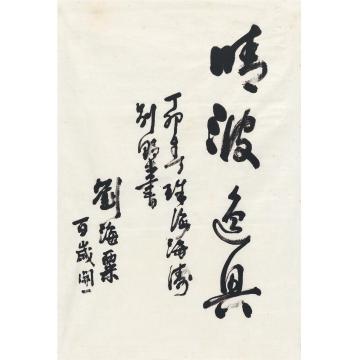 晴波逸具
丁卯年于珠海海濤
別墅並書
劉海粟
百歲開一